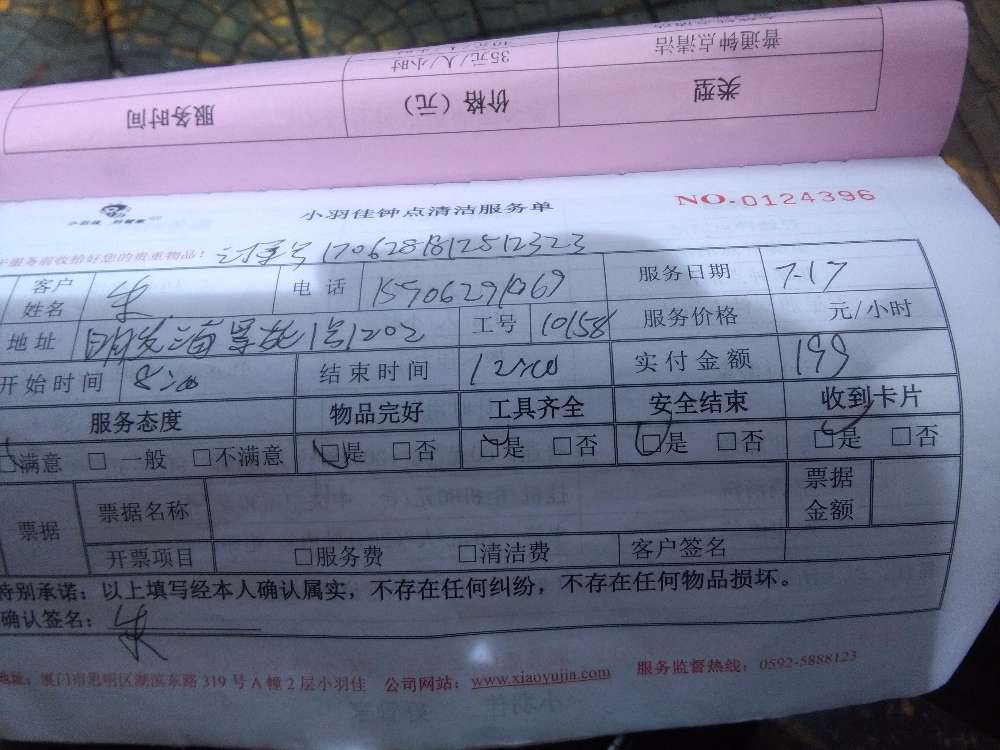 普通钟点清洁 35元/人/小时
类型 价格（元） 服务时间
小羽佳 好管家
小羽佳钟点清洁服务单 NO.0124396
服务前收拾好您的贵重物品！订单号1706281812812323
客户姓名 朱 电话 服务日期 7-17
地址 明发海景苑1号1202 工号 10158 服务价格 元/小时
开始时间 8:00 结束时间 12:00 实付金额 199
服务态度 物品完好 工具齐全 安全结束 收到卡片
□满意 □一般 □不满意 □是 □否 □是 □否 □是 □否 □是 □否
票据 票据名称 票据金额
开票项目 □服务费 □清洁费 客户签名
特别承诺：以上填写经本人确认属实，不存在任何纠纷，不存在任何物品损坏。
确认签名：朱
地址：厦门市思明区湖滨东路319号A幢2层小羽佳 公司网站：www.xiaoyujia.com 服务监督热线：0592-5888123